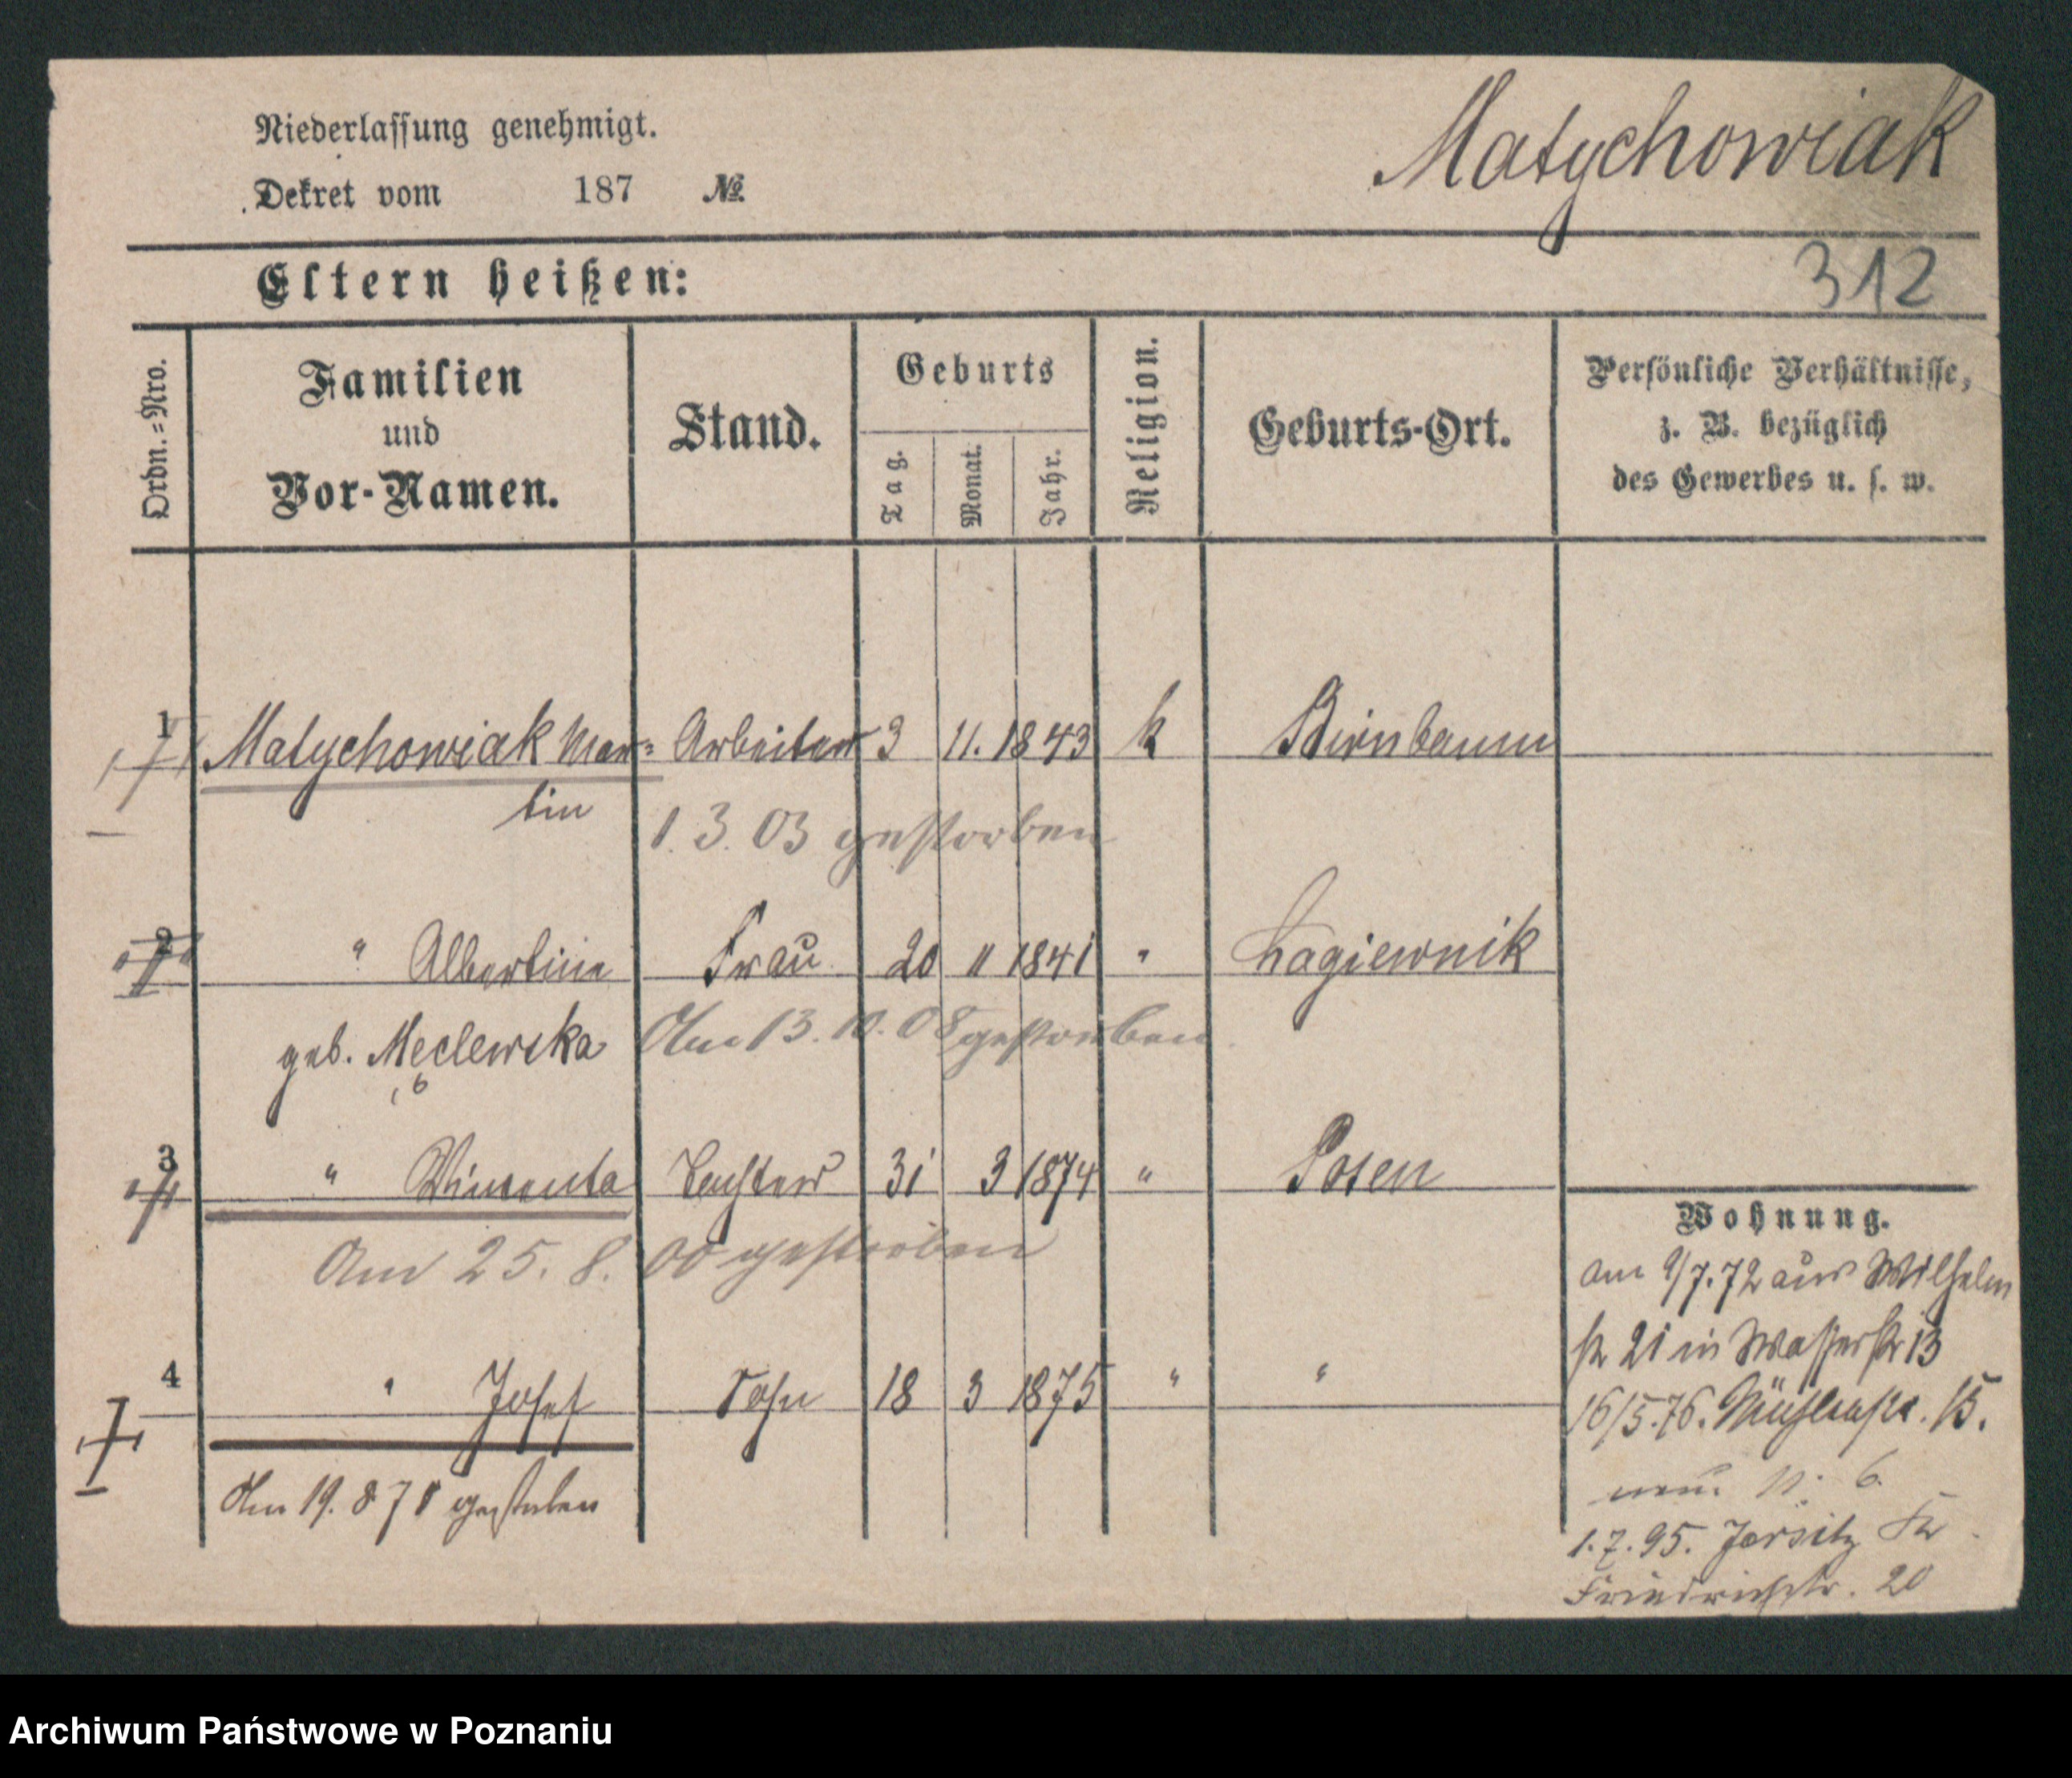 Niederlassung genehmigt.
Dekret vom 187 №
Matychowiak
312
Eltern heißen:
Ordn.=Nro.
Familien
und
Vor-Namen.
Stand.
Geburts
Tag.
Monat.
Jahr.
Religion.
Geburts-Ort.
Persönliche Verhältnisse,
z. B. bezüglich
des Gewerbes u. s. w.
1 Matychowiak Mar= Arbeiter 3 11. 1843 k Birnbaum
tin
1. 3. 03 gestorben
2 " Albertine Frau 20 11 1841 " Lagiewnik
geb. Meclewska Am 13. 10. 08 gestorben
3 " Vincenta Tochter 31 3 1874 " Posen
Am 25. 8. 00 gestorben
4 " Josef Sohn 18 3 1875 " "
Am 19. 8 78 gestorben
Wohnung.
am 9/7.72 aus Wilhelm
str 21 in Wasserstr 13
16/5.76. Mühlenstr. 15.
neu 6.
1.7.95. Jersitz
Friedrichstr. 20
Archiwum Państwowe w Poznaniu